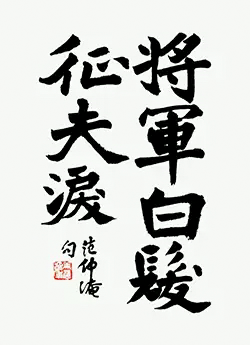 將軍白髮
征夫淚
范仲淹
句